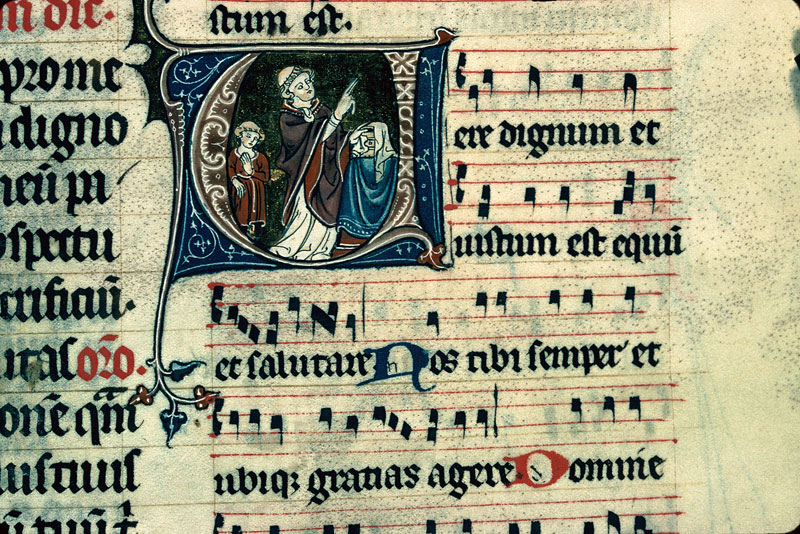 m die.
prome
digno
neū pa
spectu
crificiū.
itas orō.
onē qm̄
iustius
stum est.
Vere dignum et
iustum est equū
et salutare Nos tibi semper et
ubiqꝫ gratias agere Domine